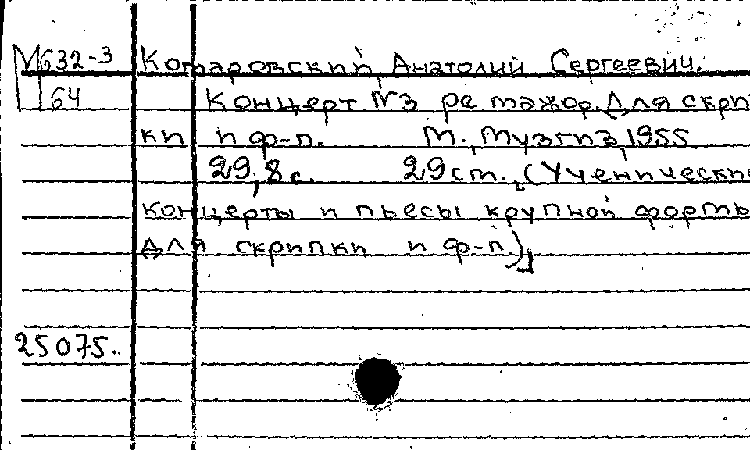 М632-3 Комаровский, Анатолий Сергеевич.
64 Концерт №3 ре мажор. Для скрип
ки и ф-п. М., Музгиз, 1955
29, 8 с. 29 см. (Ученические
концерты и пьесы крупной формы
для скрипки и ф-п.)
25075.